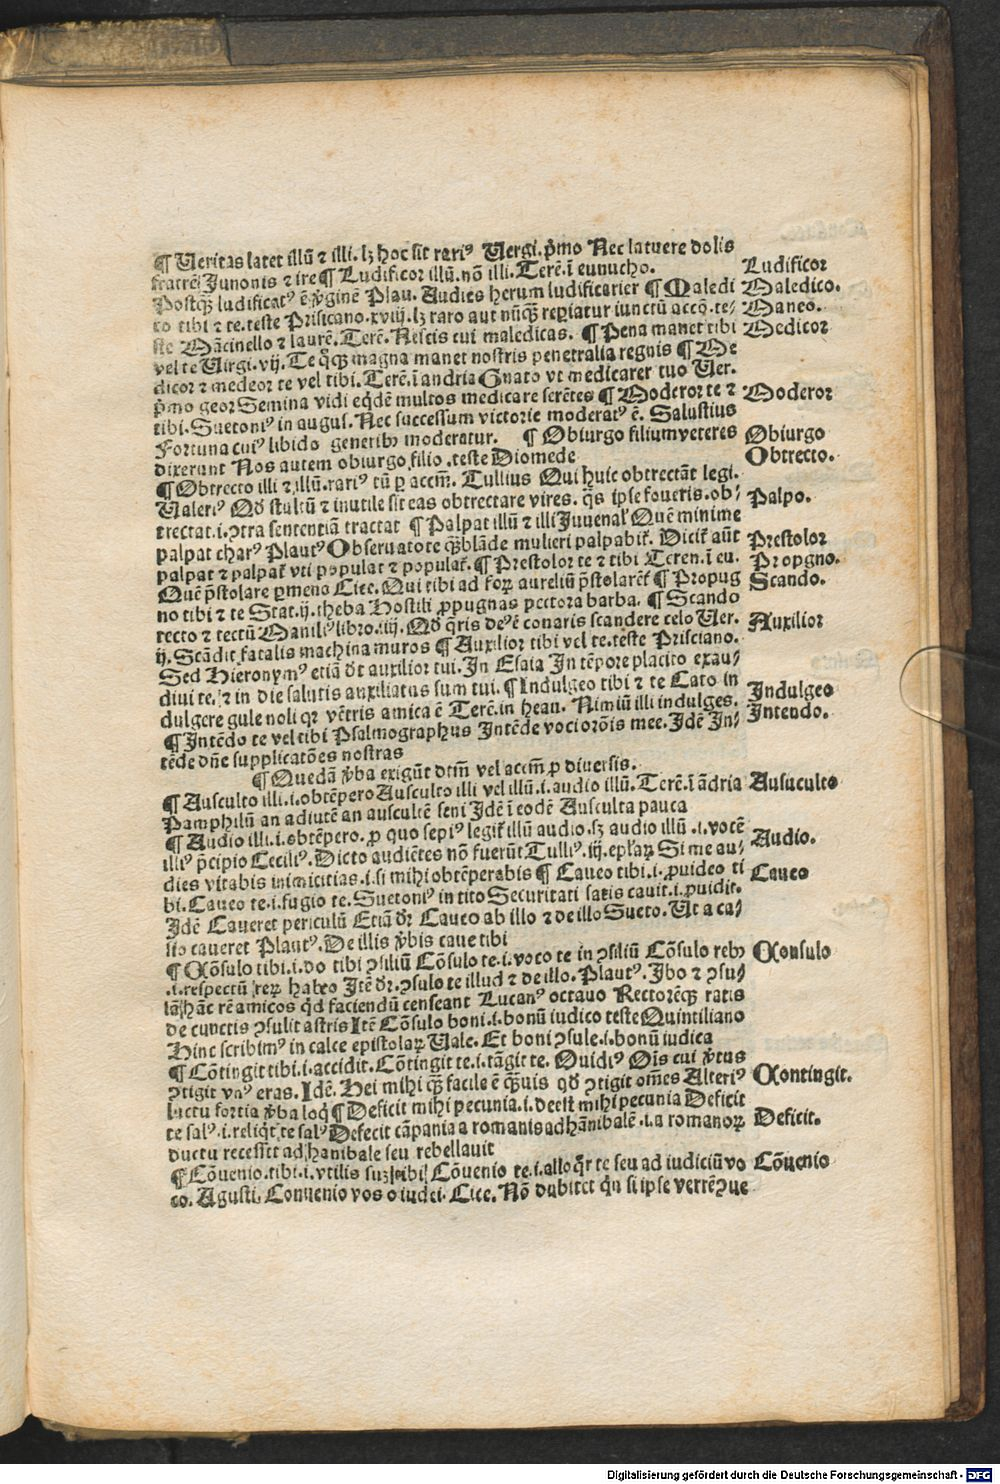 ¶ Ueritas latet illū ⁊ illi. lꝫ hoc sit rariꝰ Uergi. p̄mo Nec latuere dolis
fratrē Junonis ⁊ ire ¶ Ludificor illū. nō illi. Terē. ī eunucho.
Ludificor
Postq̄ꝫ ludificatꝰ ē v̓ginē Plau. Audies herum ludificarier ¶ Maledi
Maledico.
co tibi ⁊ te. teste Prisicano. xviij. lꝫ raro aut nūq̄ꝫ reꝑiatur iunctū accō. te-
Maneo.
ste Mācinello ⁊ laurē. Terē. Nescis cui maledicas. ¶ Pena manet tibi
Medicor
vel te Uirgi. vij. Te q̊q̄ꝫ magna manet nostris penetralia regnis ¶ Me
dicor ⁊ medeor te vel tibi. Terē. ī andria Gnato vt medicarer tuo Uer.
p̄mo geor Semina vidi eq̇dē multos medicare serētes ¶ Moderor te ⁊
Moderor
tibi. Suetoniꝰ in augus. Nec successum victorie moderatꝰ ē. Salustius
Fortuna cuiꝰ libido gentibꝫ moderatur. ¶ Obiurgo filium veteres
Obiurgo
dixerunt Nos autem obiurgo filio. teste Diomede
Obtrecto.
¶ Obtrecto illi ⁊ illū. rariꝰ tn̄ ꝑ accm̄. Tullius Qui huic obtrectāt legi.
Ualeriꝰ Qd̓ stultū ⁊ inutile sit eas obtrectare vires. q̄s ipse foueris. ob-
Palpo.
trectat. i. ꝯtra sententiā tractat ¶ Palpat illū ⁊ illi Juuenal̓ Quē minime
palpat charꝰ Plautꝰ Obseruatote q̄ꝫ blāde mulieri palpabiť. Diciť aūt
Prestolor
palpat ⁊ palpať vti populat ⁊ populať. ¶ Prestolor te ⁊ tibi Teren. ī eu.
Propgno.
Quē p̄stolare ꝑmeno Cice. Qui tibi ad forꝝ aureliū p̄stolarēť ¶ Propug
Scando.
no tibi ⁊ te Stat. ij. theba Hostili ꝓpugnas pectora barba. ¶ Scando
tecto ⁊ tectū Maniliꝰ libro. iiij. Qd̓ q̄ris deꝰ ē conaris scandere celo Uer.
Auxilior
ij. Scādit fatalis machina muros ¶ Auxilior tibi vel te. teste Prisciano.
Sed Hieronymꝰ etiā dr̄ auxilior tui. In Esaia In tēpore placito exau-
diui te. ⁊ in die salutis auxiliatus sum tui. ¶ Indulgeo tibi ⁊ te Cato in
Indulgeo
dulgere gule noli qr̄ vētris amica ē Terē. in heau. Nimiū illi indulges.
Intendo.
¶ Intēdo te vel tibi Psalmographus Intēde voci orōis mee. Idē In-
tēde dn̄e supplicatōes nostras
¶ Quedā v̓ba exigūt dtm̄ vel accm̄ ꝓ diuersis.
¶ Ausculto illi. i. obtēpero Ausculto illi vel illū. i. audio illū. Terē. ī ādria
Ausuculto
Pamphilū an adiutē an auscultē seni Idē ī eodē Ausculta pauca
¶ Audio illi. i. obtēpero. ꝓ quo sepiꝰ legiť illū audio. sꝫ audio illū. i. vocē
Audio.
illiꝰ p̄cipio Ceciliꝰ. Dicto audiētes nō fuerūt Tulliꝰ. iij. epl̓aꝝ Si me au-
dies vitabis inimicitias. i. si mihi obtēperabis ¶ Caueo tibi. i. ꝓuideo ti
Caueo
bi. Caueo te. i. fugio te. Suetoniꝰ in tito Securitati satis cauit. i. ꝓuidit.
Idē Caueret periculū Etiā dr̄ Caueo ab illo ⁊ de illo Sueto. Ut a ca-
sio caueret Plautꝰ. De illis v̓bis caue tibi
¶ Cōsulo tibi. i. do tibi ꝯsiliū Cōsulo te. i. voco te in ꝯsiliū Cōsulo rebꝫ
Consulo
.i. respectū reꝝ habeo Itē dr̄. ꝯsulo te illud ⁊ de illo. Plautꝰ. Ibo ⁊ ꝯsu-
lā hāc rē amicos qd̓ faciendū censeant Lucanꝰ octauo Rectorēq̄ꝫ ratis
de cunctis ꝯsulit astris Itē Cōsulo boni. i. bonū iudico teste Quintiliano
Hinc scribimꝰ in calce epistolaꝝ Uale. Et boni ꝯsule. i. bonū iudica
¶ Cōtingit tibi. i. accidit. Cōtingit te. i. tāgit te. Ouidiꝰ Oīs cui v̓tus
Contingit.
ꝯtigit vnꝰ eras. Idē. Hei mihi q̄ꝫ facile ē q̄ꝫuis qd̓ ꝯtigit om̄es Alteriꝰ
luctu fortia v̓ba loq̇ ¶ Deficit mihi pecunia. i. deest mihi pecunia Deficit
Deficit.
te salꝰ. i. reliq̇t te salꝰ Defecit cāpania a romanis ad hānibalē. i. a romanoꝝ
ductu recessit ad hanibale seu rebellauit
¶ Cōuenio. tibi. i. vtilis suꝫ tibi Cōuenio te. i. alloq̄r te seu ad iudiciū vo
Cōuenio
co. Agusti. Conuenio vos o iudei. Cice. Nō dubitet q̇n si ipse verrē ꝯue
Digitalisierung gefördert durch die Deutsche Forschungsgemeinschaft - DFG